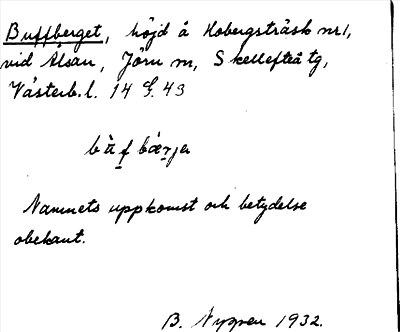 Buffberget, höjd å Hobergsträsk nr 1,
vid Ålsån, Jörn sn, Skellefteå tg,
Västerb. l. 14 G. 43
Namnets uppkomst och betydelse
obekant.
B. Nyman 1932.